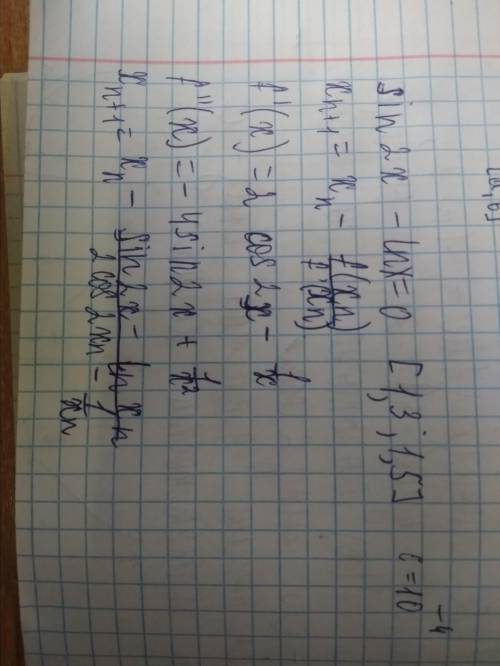 sin 2x - ln x = 0 [1,3 ; 1,5] ε = 10^-4
x_{n+1} = x_n - f(x_n)/f'(x_n)
f'(x) = 2 cos 2x - 1/x
f''(x) = - 4 sin 2x + 1/x²
x_{n+1} = x_n - (sin 2x - ln x_n)/(2 cos 2x_n - 1/x_n)